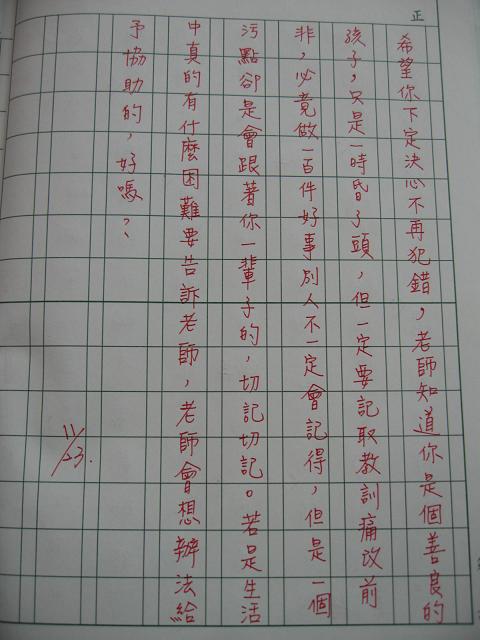 正
希望你下定決心不再犯錯，老師知道你是個善良的
孩子，只是一時昏了頭，但一定要記取教訓痛改前
非，必竟做一百件好事別人不一定會記得，但是一個
污點卻是會跟著你一輩子的，切記切記。若是生活
中真的有什麼困難要告訴老師，老師會想辦法給
予協助的，好嗎？
11/23.